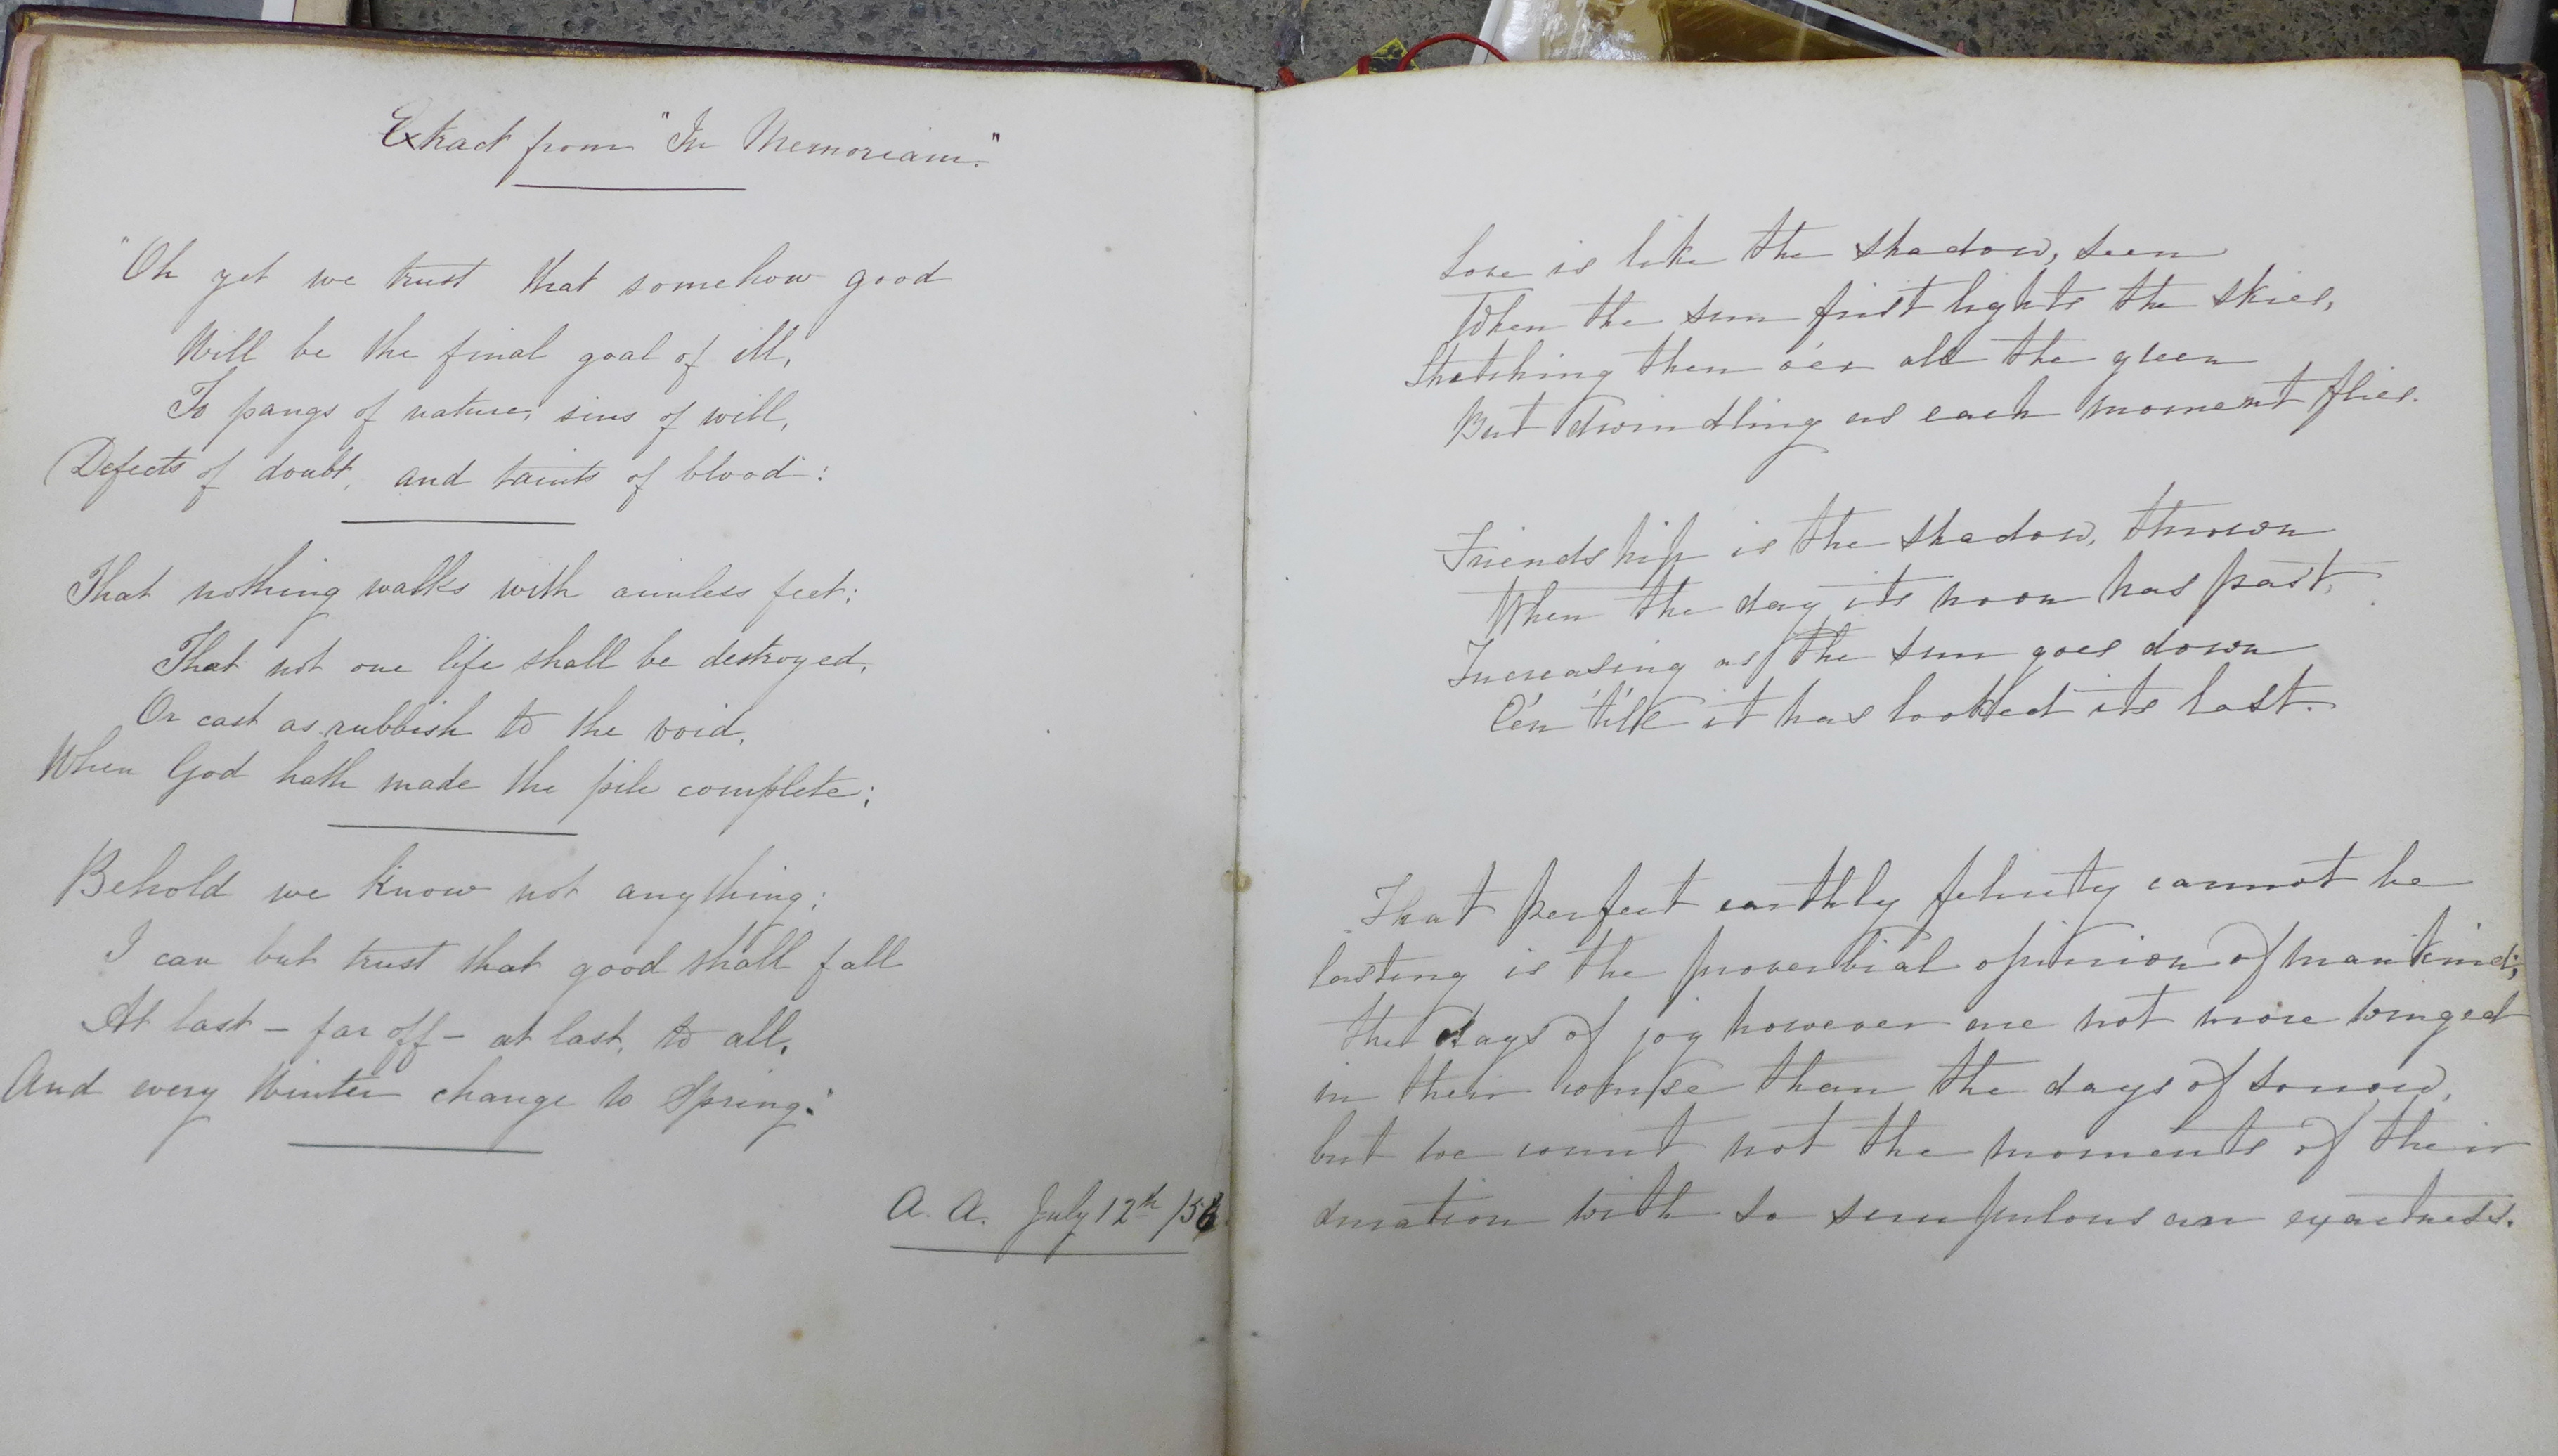 Extract from "In Memoriam."
"Oh yet we trust that somehow good
Will be the final goal of ill,
To pangs of nature, sins of will,
Defects of doubt, and taints of blood:
That nothing walks with aimless feet:
That not one life shall be destroyed,
Or cast as rubbish to the void,
When God hath made the pile complete;
Behold we know not anything;
I can but trust that good shall fall
At last – far off – at last, to all,
And every Winter change to Spring."
A. A. July 12th /56
Love is like the shadow, seen
When the sun first lights the skies,
Stretching then o'er all the green
But dwindling as each moment flies.
Friendship is the shadow, thrown
When the day its noon has past,
Increasing as the sun goes down
E'en 'till it has looked its last.
That perfect earthly felicity cannot be
lasting is the proverbial opinion of mankind;
the days of joy however are not more winged
in their course than the days of sorrow,
but we count not the moments of their
duration with so scrupulous an exactness.